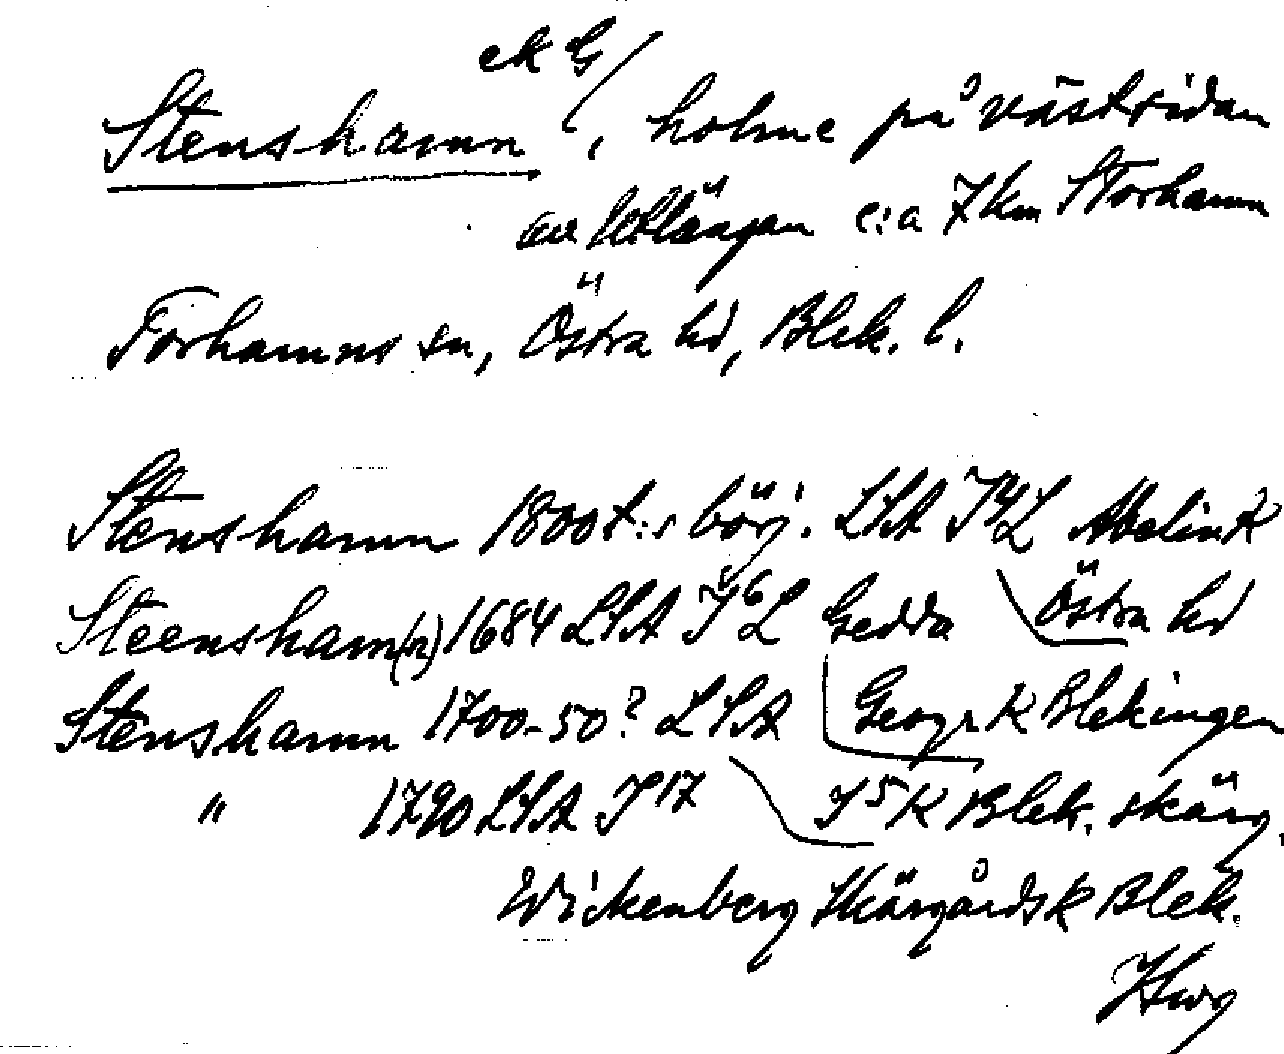 ek G/
Stenshamn, holme på västsidan
av Utlängan c:a 7 km Storhamn
Torhamns sn, Östra hd, Blek. l.
Stenshamn 1800t:s börj. LSA J4L Abelin K
Östra hd
Steensham(n) 1684 LSA J6L Gedda
Geogr K Blekingen
Stenshamn 1700-50? LSA
J5K Blek. skärg.
" 1790 LSA J17
Wickenberg Skärgårdsk Blek.